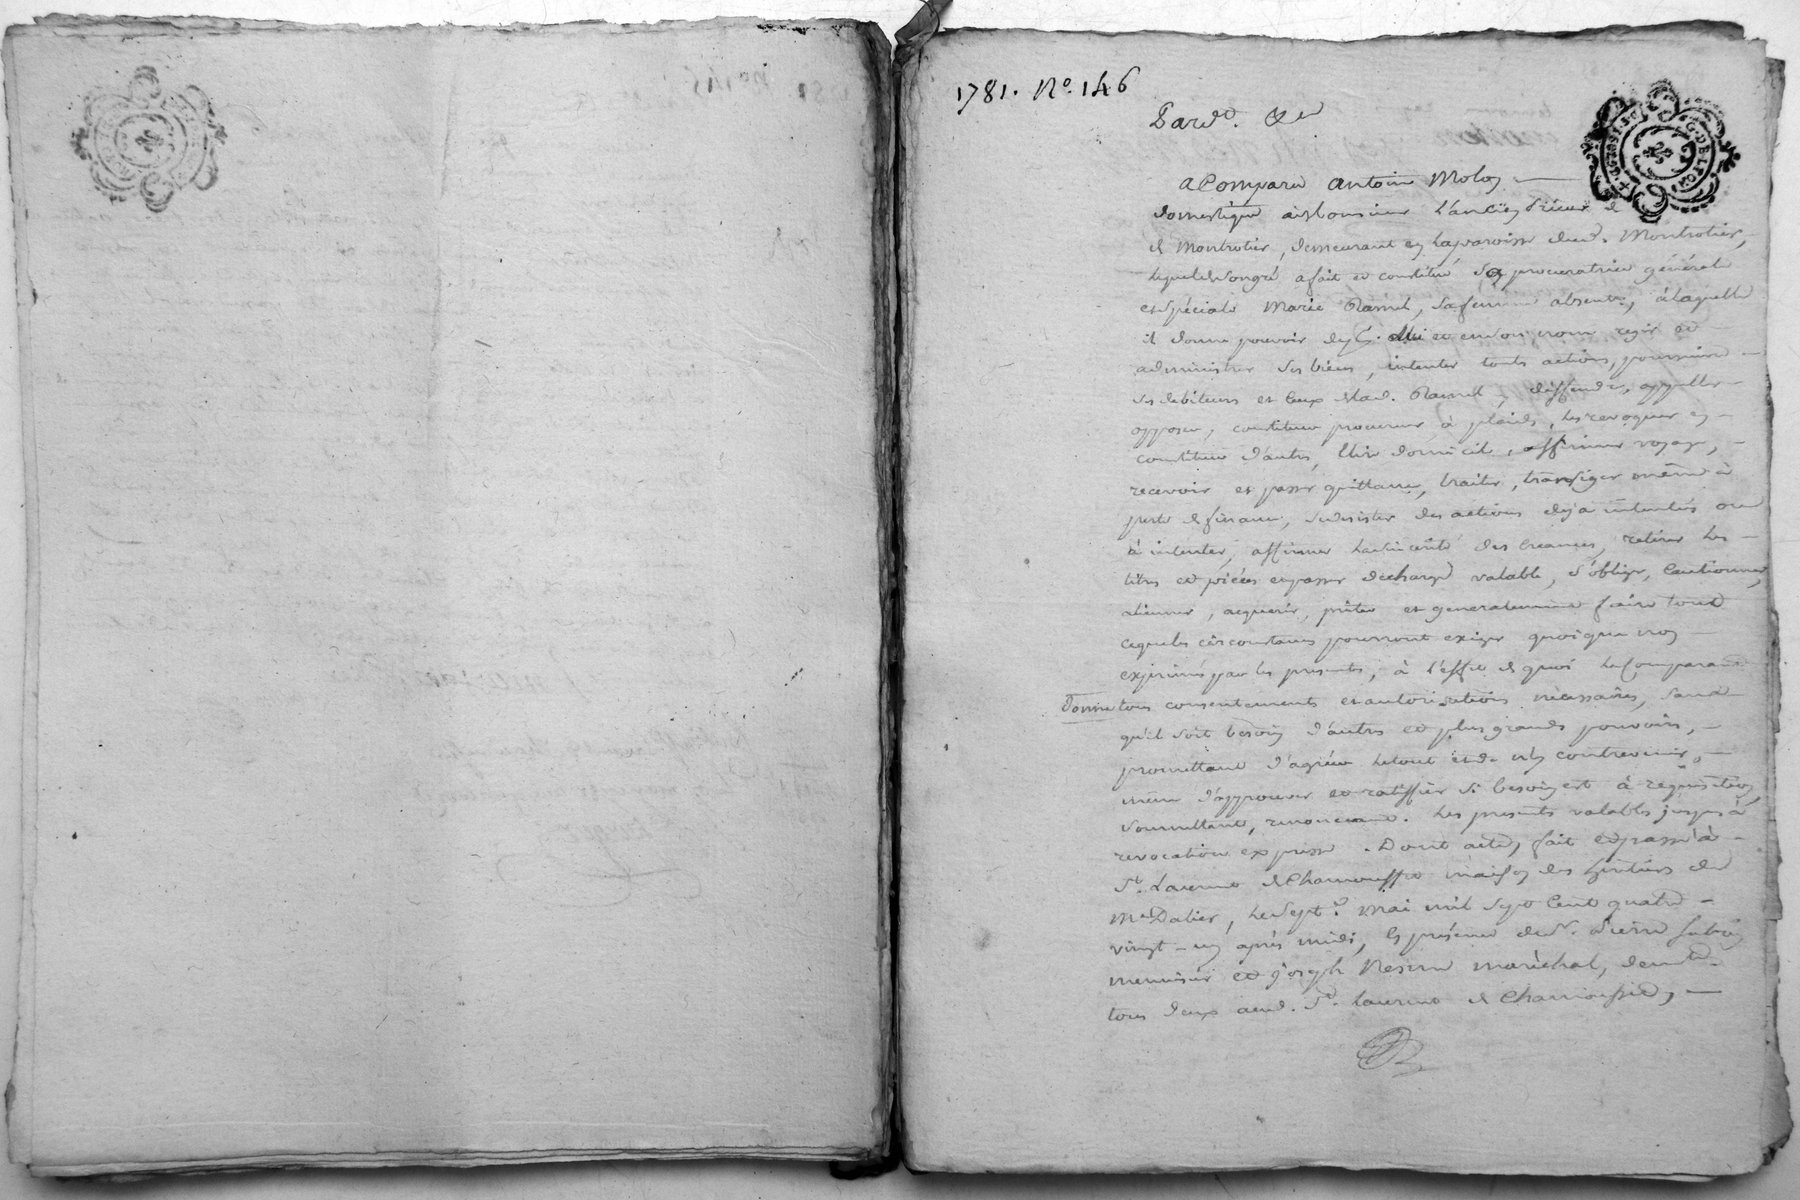 1781. No. 146
Pard. &
a Comparu antoine Moloy
domestique à Monsieur L'ancien Prieur
de Montrotier, demeurant en la paroisse dud. Montrotier,
lequel de son gré a fait et constitué sa procuratrice générale
et spéciale Marie Ramel, sa femme absente, à laquelle
il donne pouvoir de pr. lui et en son nom regir et
administrer ses biens, intenter touts actions, poursuivre
ses debiteurs et ceux de lad. Ramel, deffendre, appeller
opposer, constituer procureur à plaids, les revoquer en
constituer d'autres, Elire domicile, affirmer voyage,
recevoir et passer quittance, traiter, transiger même à
perte de finance, se desister des actions deja intentées ou
à intenter, affirmer la sincerité des creances, retirer les
titres et pièces en passer decharge valable, s'obliger, Cautionner,
aliener, acquerir, prêter et generalement faire tout
ce que les circonstances pourront exiger quoique non
exprimés par les presentes, à l'effet de quoi Le Comparant
donne tous consentements et autorisations necessaires, sans
qu'il soit besoin d'autres et plus grands pouvoirs,
promettant d'agréer le tout et de n'y contrevenir,
même d'approuver et ratiffier si besoin est à requisition,
soumettant, renonceant. Les presentes valables jusqu'à
revocation expresse. Dont acte, fait et passé à
St. Laurent de Chamousset maison des heritiers de
Me Dalier, le sept mai mil sept Cent quatre
vingt-un après midi, En présence de Sr. Pierre
menuisier et Joseph maréchal, demt.
tous deux aud. St. Laurent de Chamousset,